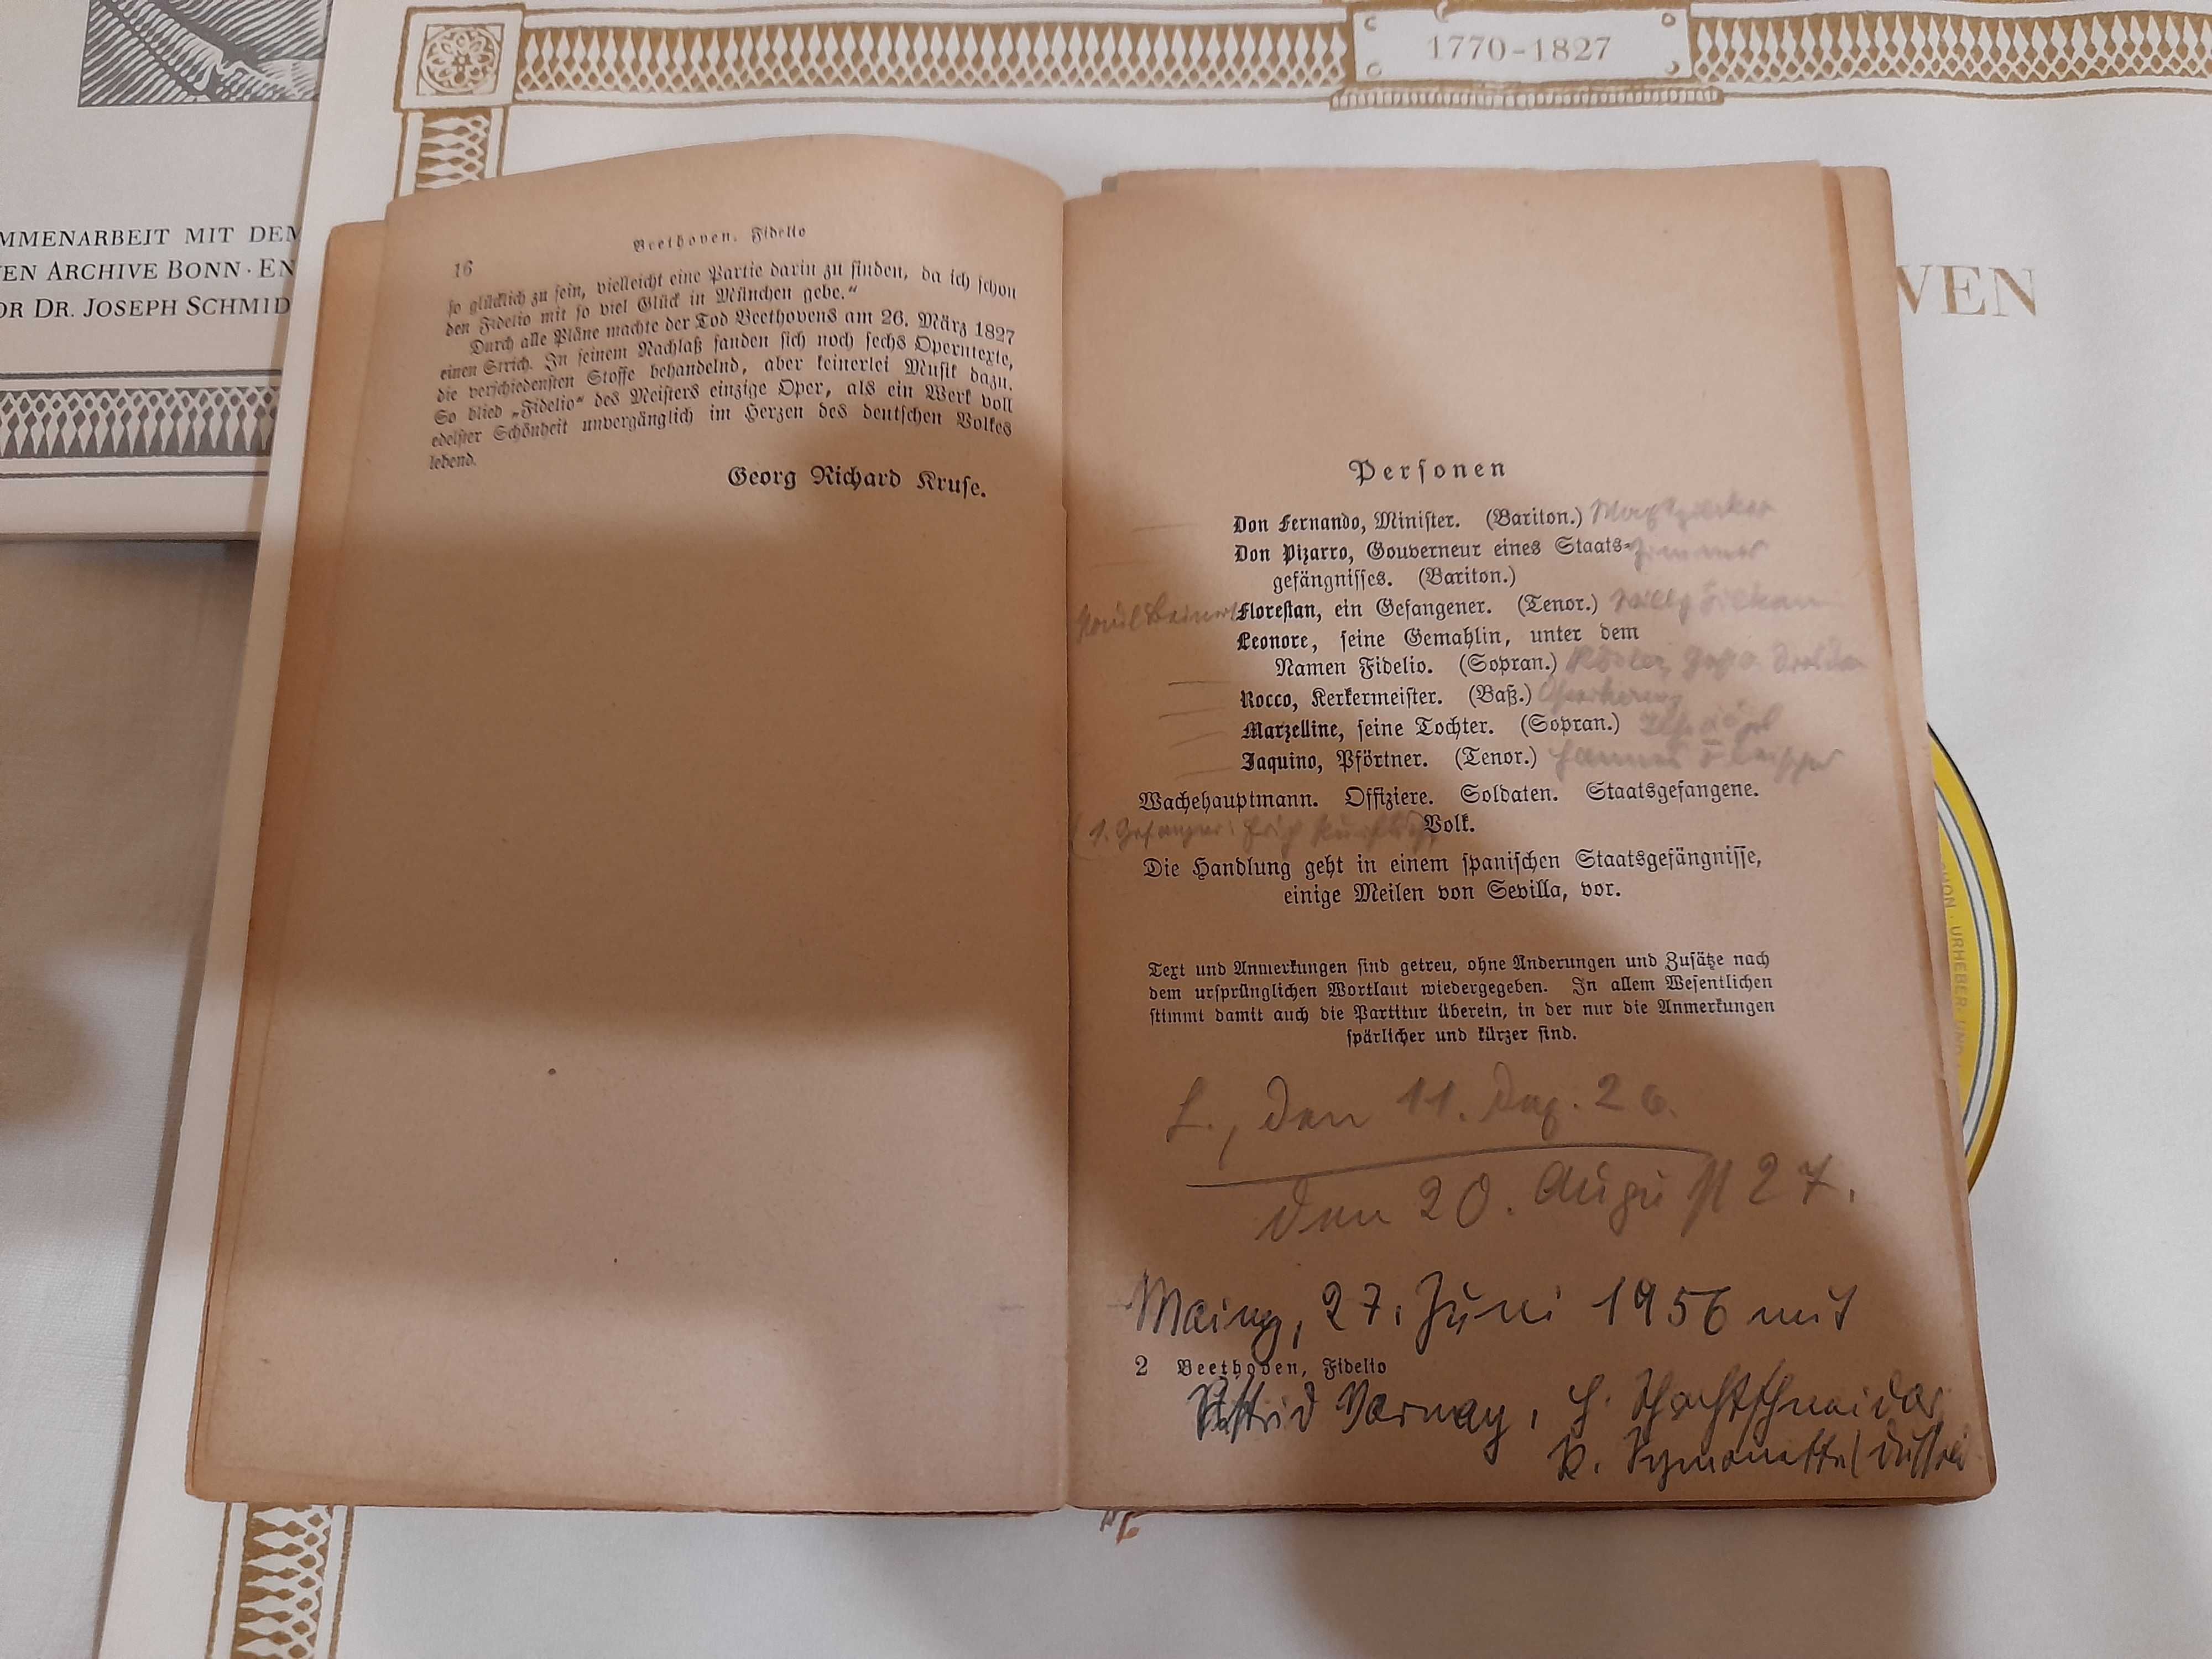 1770-1827
MMENARBEIT MIT DEM
EN ARCHIVE BONN · EN
OR DR. JOSEPH SCHMID
VEN
16
Beethoven. Fidelio
so glücklich zu sein, vielleicht eine Partie darin zu finden, da ich schon
den Fidelio mit so viel Glück in München gebe.“
Durch alle Pläne machte der Tod Beethovens am 26. März 1827
einen Strich. In seinem Nachlaß fanden sich noch sechs Operntexte,
die verschiedensten Stoffe behandelnd, aber keinerlei Musik dazu.
So blieb „Fidelio“ des Meisters einzige Oper, als ein Werk voll
edelster Schönheit unvergänglich im Herzen des deutschen Volkes
lebend.
Georg Richard Kruse.
Personen
Don Fernando, Minister. (Bariton.)
Don Pizarro, Gouverneur eines Staats-
gefängnisses. (Bariton.)
Florestan, ein Gefangener. (Tenor.) Willy
Leonore, seine Gemahlin, unter dem
Namen Fidelio. (Sopran.) Dresden
Rocco, Kerkermeister. (Baß.)
Marzelline, seine Tochter. (Sopran.)
Jaquino, Pförtner. (Tenor.) Hannes Fleischer
Wachehauptmann. Offiziere. Soldaten. Staatsgefangene.
(1. Gefangener: Erich Volk.
Die Handlung geht in einem spanischen Staatsgefängnisse,
einige Meilen von Sevilla, vor.
Text und Anmerkungen sind getreu, ohne Änderungen und Zusätze nach
dem ursprünglichen Wortlaut wiedergegeben. In allem Wesentlichen
stimmt damit auch die Partitur überein, in der nur die Anmerkungen
spärlicher und kürzer sind.
L., den 11. Dez. 26.
den 20. August 27.
Mainz, 27. Juni 1956 mit
2 Beethoven, Fidelio
Astrid Varnay, H. Schachtschneider
K. Symonette (Düsseld
URHEBER UND